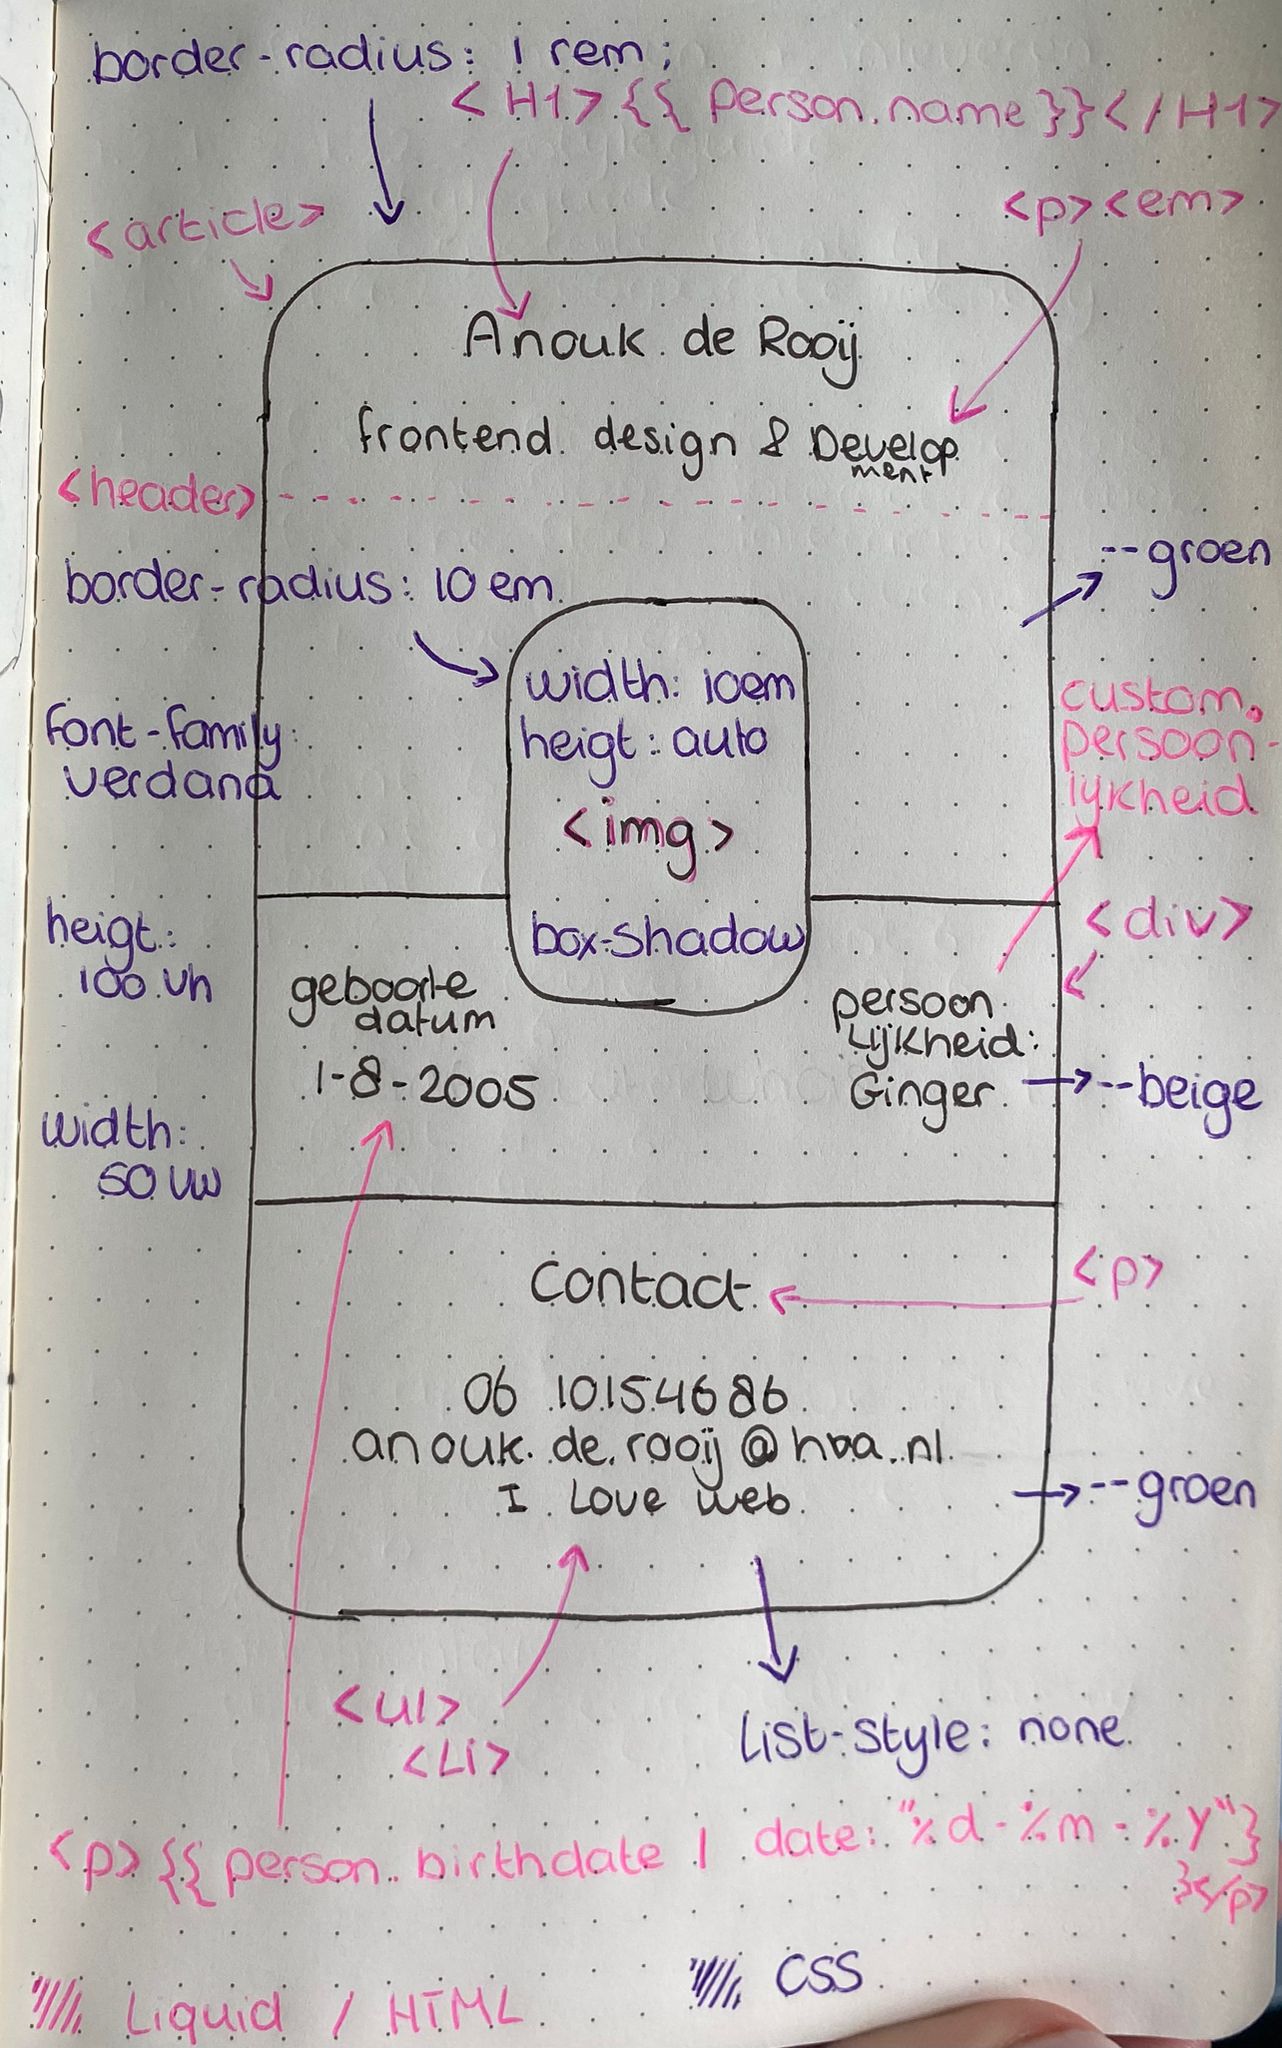 border-radius: 1 rem;
<H1>{{ Person.name }}</H1>
<article>
<p><em>
Anouk de Rooij
frontend design & Develop
ment
<header>
--groen
border-radius: 10 em
width: 10em
heigt: auto
<img>
box-shadow
font-family:
verdana
custom.
persoon-
lijkheid
heigt:
100 vh
<div>
geboorte
datum
1-8-2005
persoon
lijkheid:
Ginger
--beige
width:
50 vw
Contact
<p>
06 10154686
anouk.de.rooij@hva.nl
I Love web
--groen
<ul>
<Li>
List-style: none
<p>{{ person.birthdate | date: "%d-%m-%Y" }
}</p>
Liquid / HTML
CSS